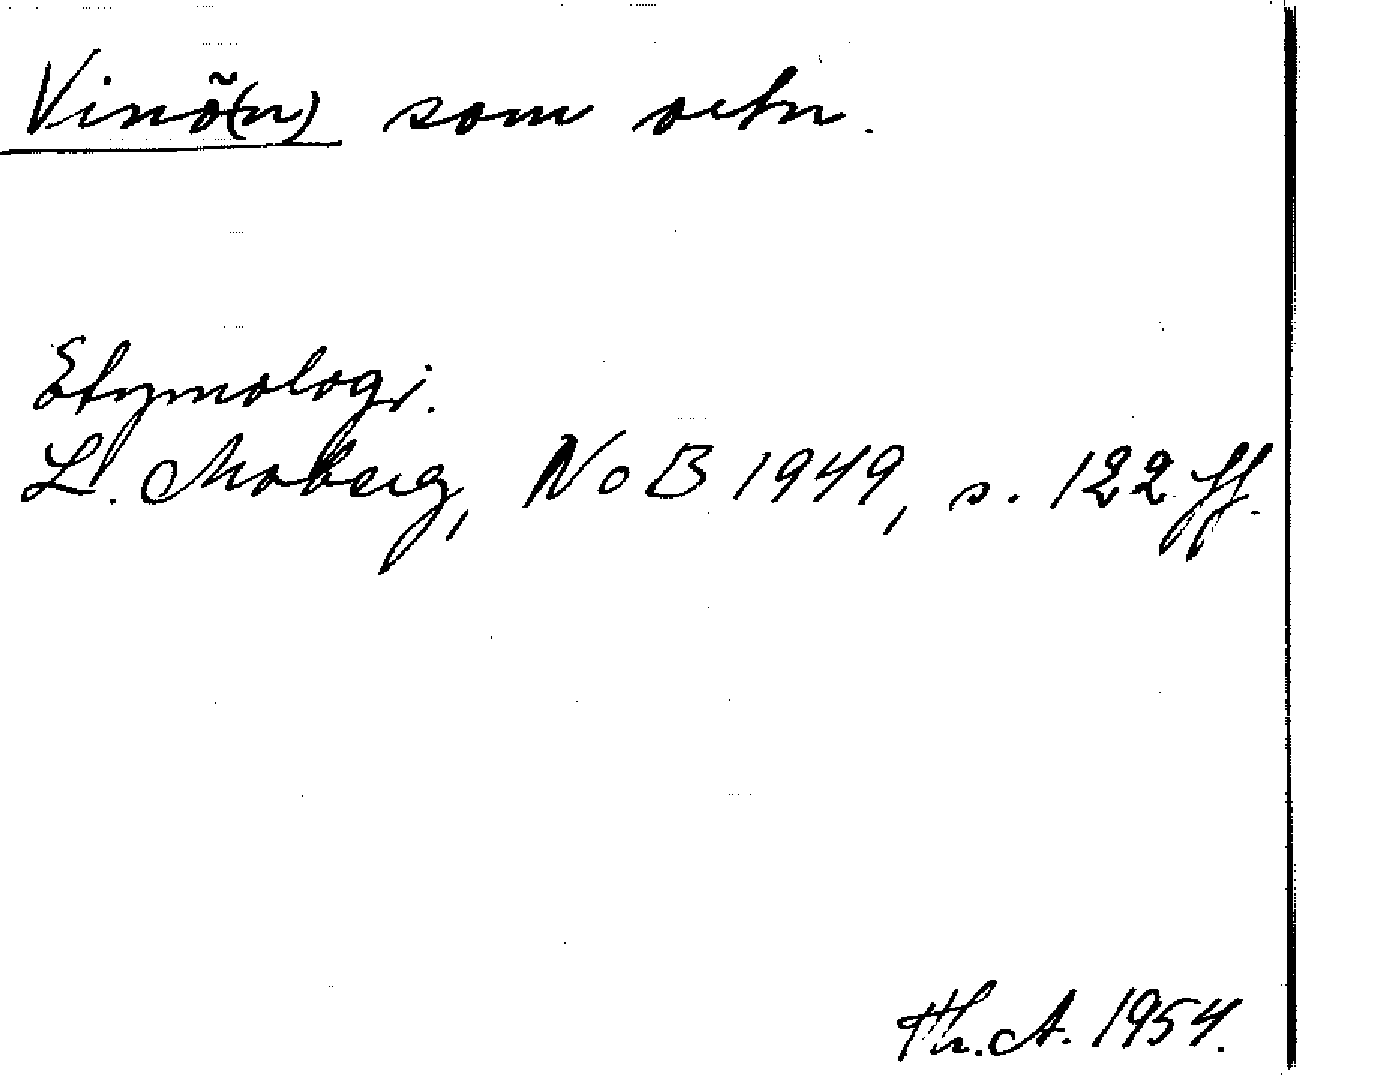 Vinö(n) som ortn.
Etymologi.
L. Moberg, NoB 1949, s. 122 ff.
Th. A. 1954.